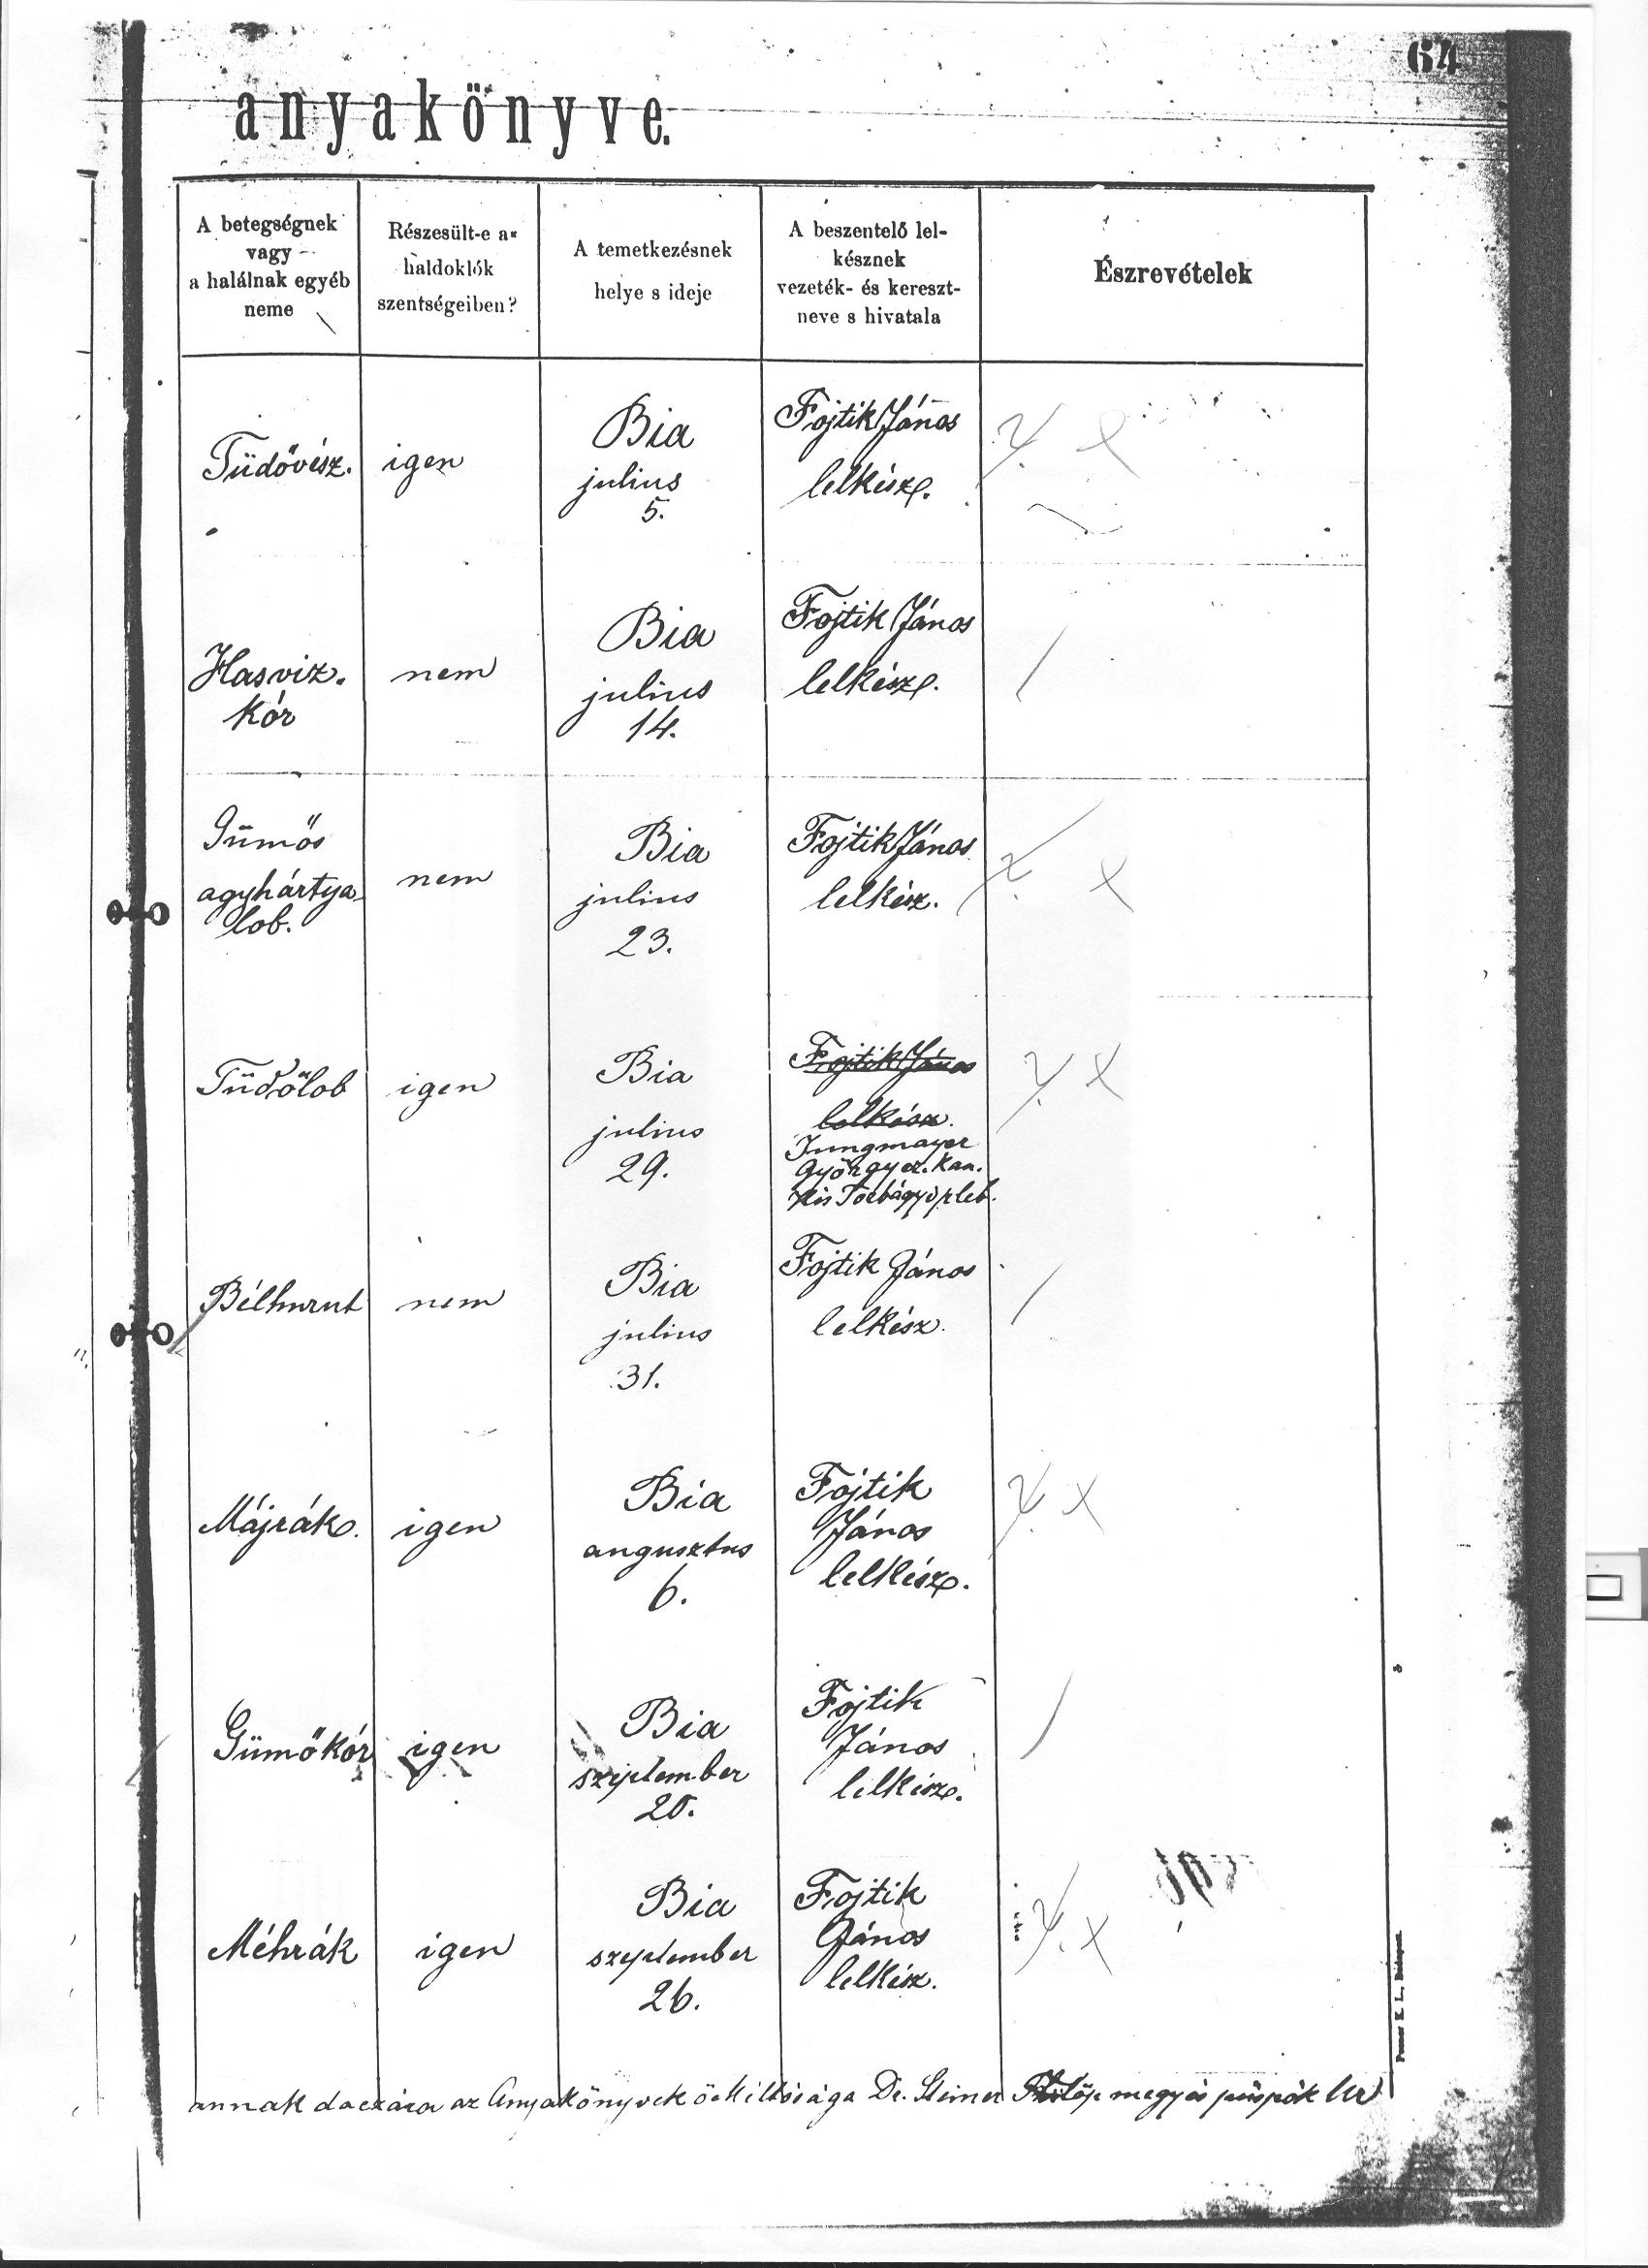 64
anyakönyve.
A betegségnek
vagy
a halálnak egyéb
neme
Részesült-e a
haldoklók
szentségeiben?
A temetkezésnek
helye s ideje
A beszentelő lel-
késznek
vezeték- és kereszt-
neve s hivatala
Észrevételek
Tüdővész.
igen
Bia
julius
5.
Fojtik János
lelkész.
Hasviz.
kór
nem
Bia
julius
14.
Fojtik János
lelkész.
Gümős
agyhártya
lob.
nem
Bia
julius
23.
Fojtik János
lelkész.
Tüdőlob
igen
Bia
julius
29.
Fojtik János
lelkész.
Jungmayer
György ez. kan.
Kis Torbágyi pleb.
Bélhurut
nem
Bia
julius
31.
Fojtik János
lelkész.
Májrák.
igen
Bia
augusztus
6.
Fojtik
János
lelkész.
Gümőkór
igen
Bia
szeptember
20.
Fojtik
János
lelkész.
Méhrák
igen
Bia
szeptember
26.
Fojtik
János
lelkész.
annak daczára az Anyakönyvek Dr. Steiner Fülöp megyés püspök Ur